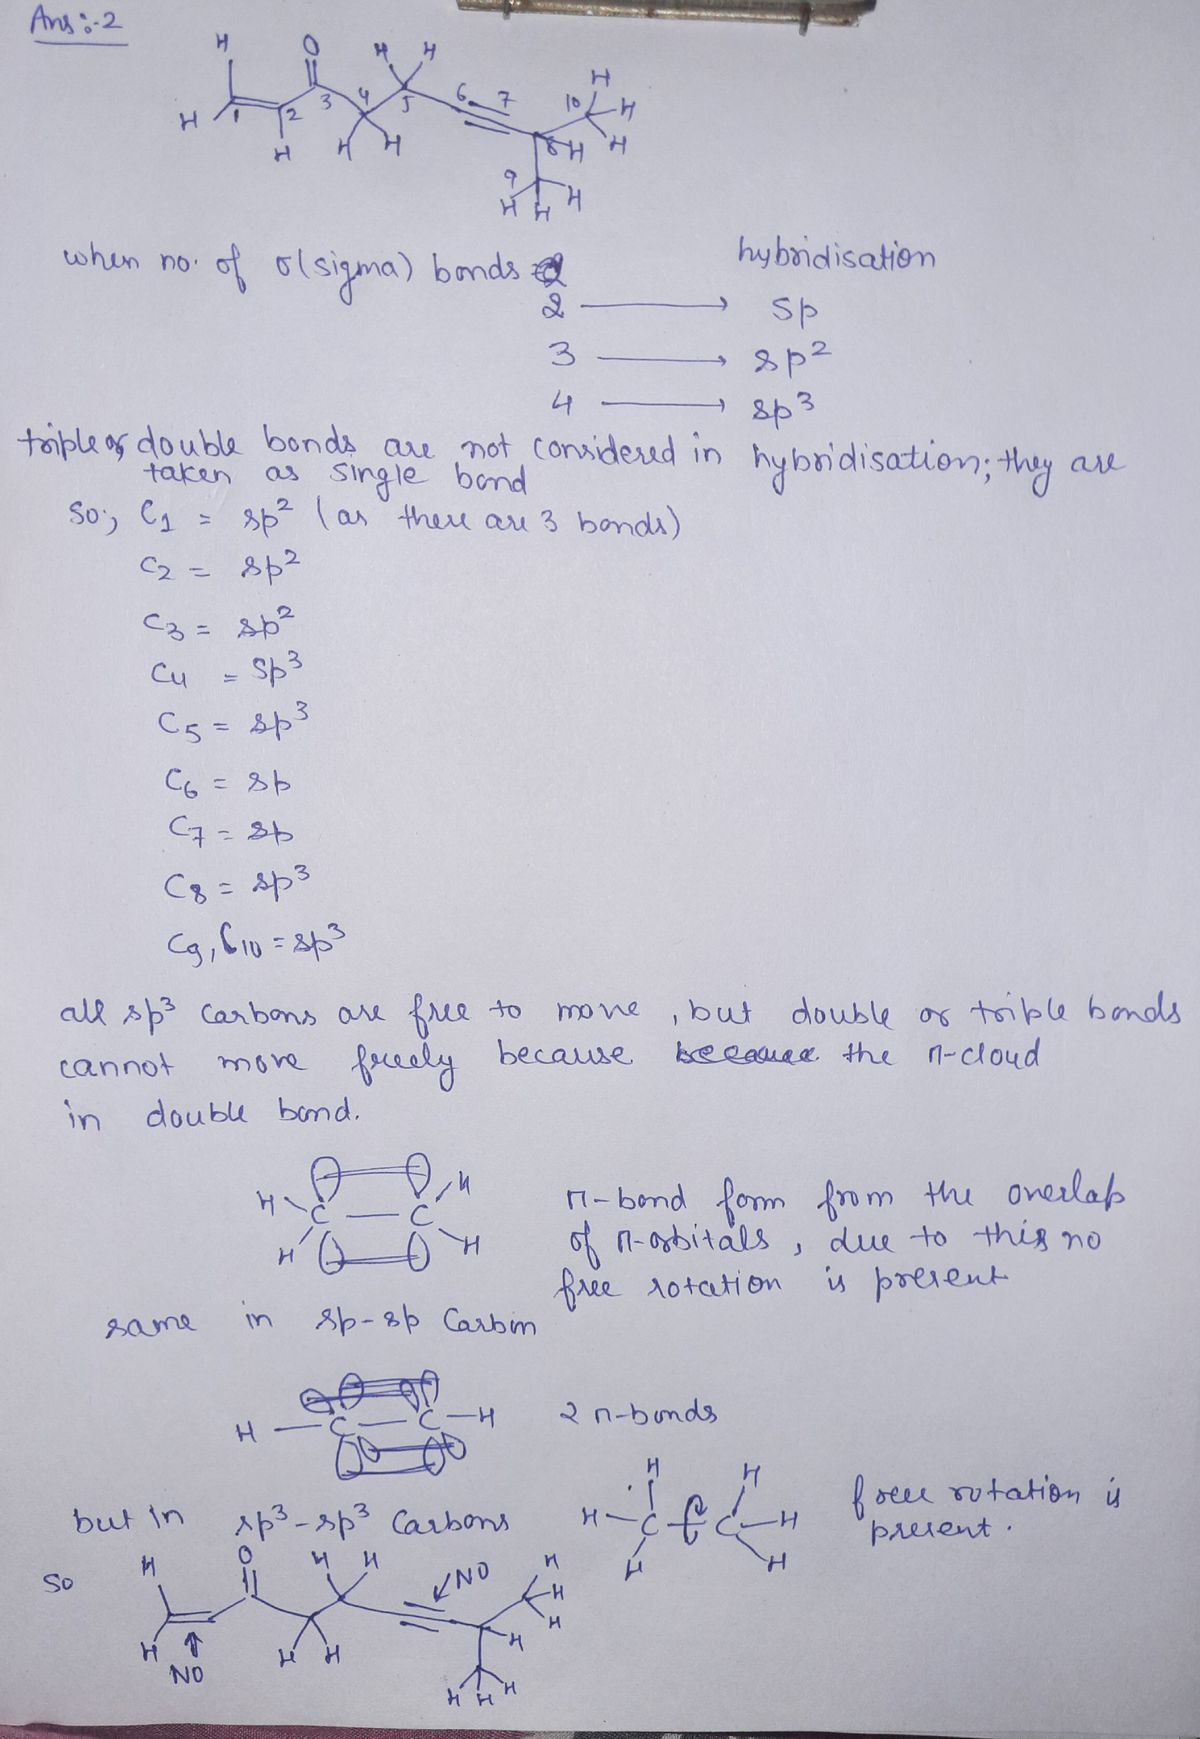 Ans:-2
H O H H
H 1 2 3 4 5 6 7 8 H 10 H H H
H H H 9 H H H
when no. of σ(sigma) bonds hybridisation
2 → sp
3 → sp²
4 → sp³
triple or double bonds are not considered in hybridisation; they are
taken as single bond
so; C1 = sp² (as there are 3 bonds)
C2 = sp²
C3 = sp²
C4 = sp³
C5 = sp³
C6 = sp
C7 = sp
C8 = sp³
C9, C10 = sp³
all sp³ carbons are free to move, but double or triple bonds
cannot move freely because because the π-cloud
in double bond.
H C — C H
H H
π-bond form from the overlap
of π-orbitals, due to this no
free rotation is present
same in sp-sp Carbon
H — C — C — H 2 π-bonds
but in sp³-sp³ Carbons
H H
H — C — C — H
H H
free rotation is
present.
so
H O H H NO H H H
H NO H H H
H H H